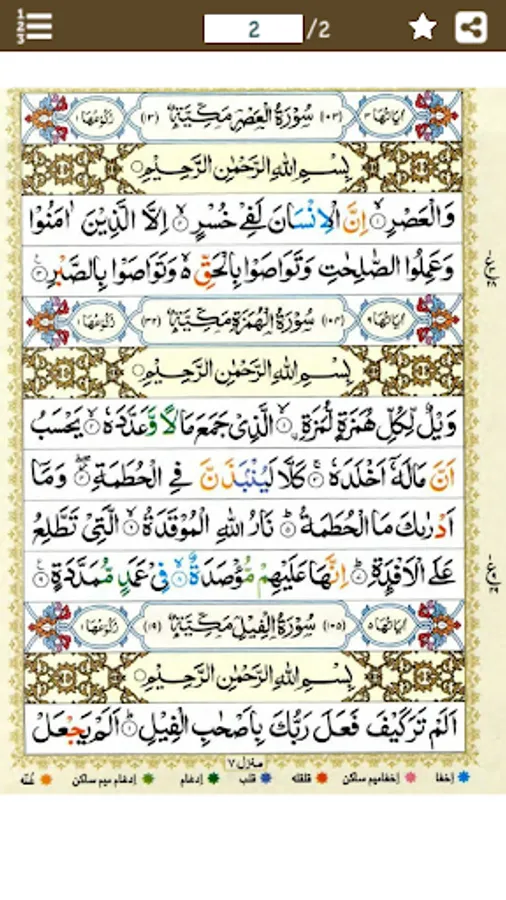 2/2
اٰیَاتُهَا ۳ (۱۰۳) سُوْرَةُ الْعَصْرِ مَكِّيَّةٌ (۱۳) رُكُوْعُهَا ۱
بِسْمِ اللهِ الرَّحْمٰنِ الرَّحِيْمِ
وَالْعَصْرِ ۙ۱ اِنَّ الْاِنْسَانَ لَفِيْ خُسْرٍ ۙ۲ اِلَّا الَّذِيْنَ اٰمَنُوْا
وَعَمِلُوا الصّٰلِحٰتِ وَتَوَاصَوْا بِالْحَقِّ ۙ۬ وَتَوَاصَوْا بِالصَّبْرِ ۳
اٰیَاتُهَا ۹ (۱۰۴) سُوْرَةُ الْهُمَزَةِ مَكِّيَّةٌ (۳۲) رُكُوْعُهَا ۱
بِسْمِ اللهِ الرَّحْمٰنِ الرَّحِيْمِ
وَيْلٌ لِّكُلِّ هُمَزَةٍ لُّمَزَةِ ۙ۱ الَّذِيْ جَمَعَ مَالًا وَّعَدَّدَهٗ ۙ۲ يَحْسَبُ
اَنَّ مَالَهٗۤ اَخْلَدَهٗ ۚ۳ كَلَّا لَيُنْۢبَذَنَّ فِي الْحُطَمَةِ ۖ۴ وَمَاۤ
اَدْرٰىكَ مَا الْحُطَمَةُ ؕ۵ نَارُ اللهِ الْمُوْقَدَةُ ۙ۶ الَّتِيْ تَطَّلِعُ
عَلَى الْاَفْـِٕدَةِ ؕ۷ اِنَّهَا عَلَيْهِمْ مُّؤْصَدَةٌ ۙ۸ فِيْ عَمَدٍ مُّمَدَّدَةٍ ۹
اٰیَاتُهَا ۵ (۱۰۵) سُوْرَةُ الْفِيْلِ مَكِّيَّةٌ (۱۹) رُكُوْعُهَا ۱
بِسْمِ اللهِ الرَّحْمٰنِ الرَّحِيْمِ
اَلَمْ تَرَ كَيْفَ فَعَلَ رَبُّكَ بِاَصْحٰبِ الْفِيْلِ ؕ۱ اَلَمْ يَجْعَلْ
منزل ۷
اِخفا اِخفامیم ساکن قلقله قلب اِدغام اِدغام میم ساکن غُنّه